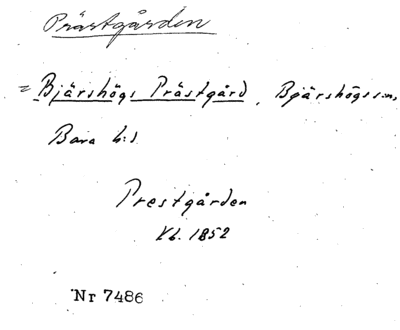 Prästgården
= Bjärshögs Prästgård, Bjärshögs s:n,
Bara h:d
Prestgården
Kb. 1852
Nr 7486